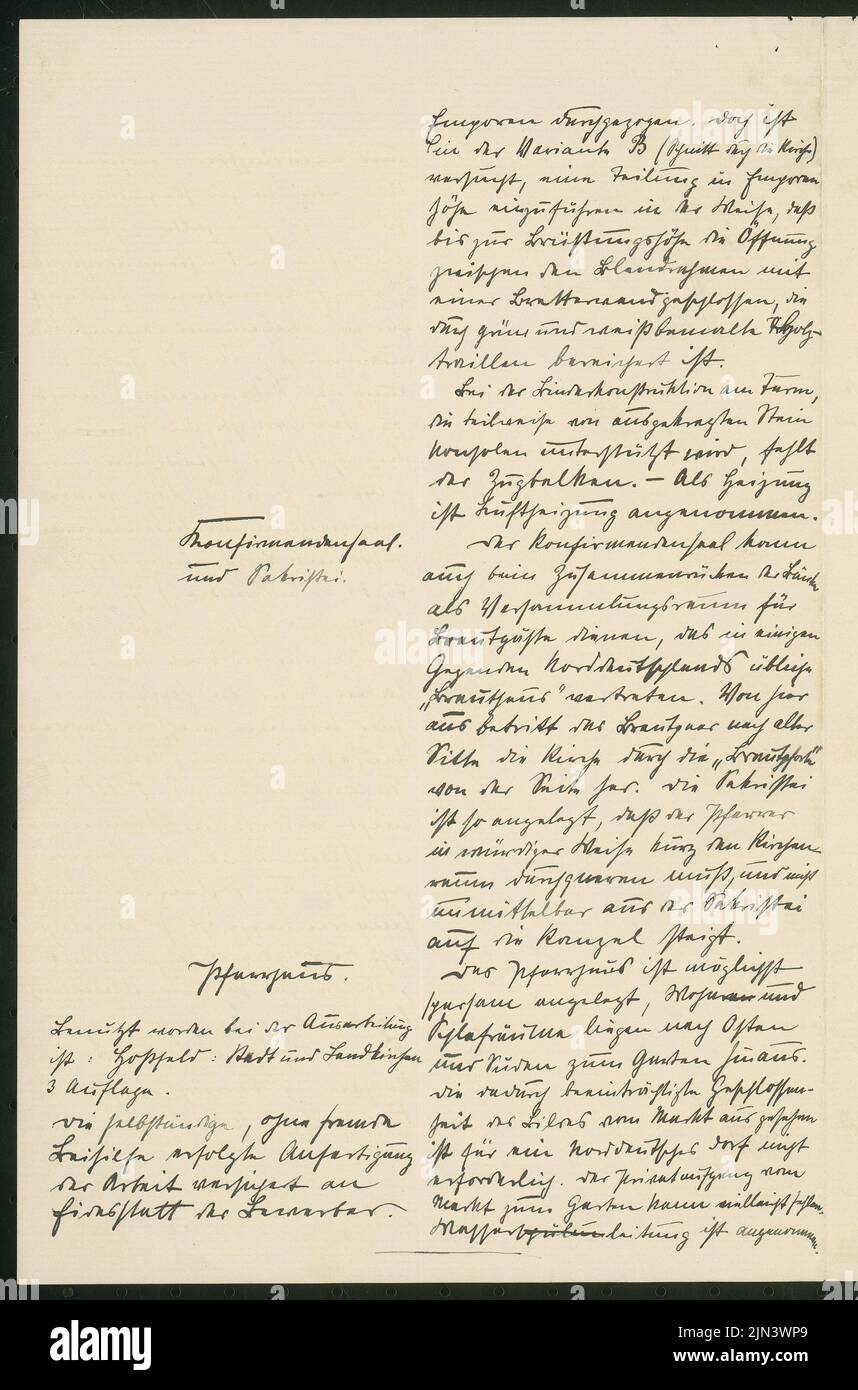 Emporen durchgezogen. Doch ist
bei der Variante B (Schnitt durch die Kirche)
versucht, eine Teilung in Emporen
höhe einzuführen in der Weise, daß
bis zur Brüstungshöhe die Öffnung
zwischen den Blendrahmen mit
einer Bretterwand geschlossen, die
durch grün und weiß bemalte Holz-
traillen bereichert ist.
Bei der Binderkonstruktion am Turm,
die teilweise von ausgekragten Stein
konsolen unterstützt wird, fehlt
der Zugbalken. – Als Heizung
ist Luftheizung angenommen.
Konfirmandensaal.
und Sakristei.
Der Konfirmandensaal kann
auch beim Zusammenrücken der Bänke
als Versammlungsraum für
Brautgäste dienen, das in einigen
Gegenden Norddeutschlands übliche
„Brauthaus" vertreten. Von hier
aus betritt das Brautpaar nach alter
Sitte die Kirche durch die „Brautpforte"
von der Seite her. Die Sakristei
ist so angelegt, daß der Pfarrer
in würdiger Weise kurz den Kirchen-
raum durchqueren muß, und nicht
unmittelbar aus der Sakristei
auf die Kanzel steigt.
Pfarrhaus.
Das Pfarrhaus ist möglichst
sparsam angelegt, Wohn und
Schlafräume liegen nach Osten
und Süden zum Garten hinaus.
Die dadurch beeinträchtigte Geschlossen-
heit des Bildes vom Markt aus gesehen
ist für ein Norddeutsches Dorf nicht
erforderlich. Der Privataufgang vom
Markt zum Garten kann vielleicht fehlen.
Wasserspülunleitung ist angenommen.
Benutzt worden bei der Ausarbeitung
ist: Hoßfeld: Stadt und Landkirchen
3 Auflage.
Die selbständige, ohne fremde
Beihilfe erfolgte Anfertigung
der Arbeit versichert an
Eidesstatt der Bewerber.
alamy
Image ID: 2JN3WP9
www.alamy.com